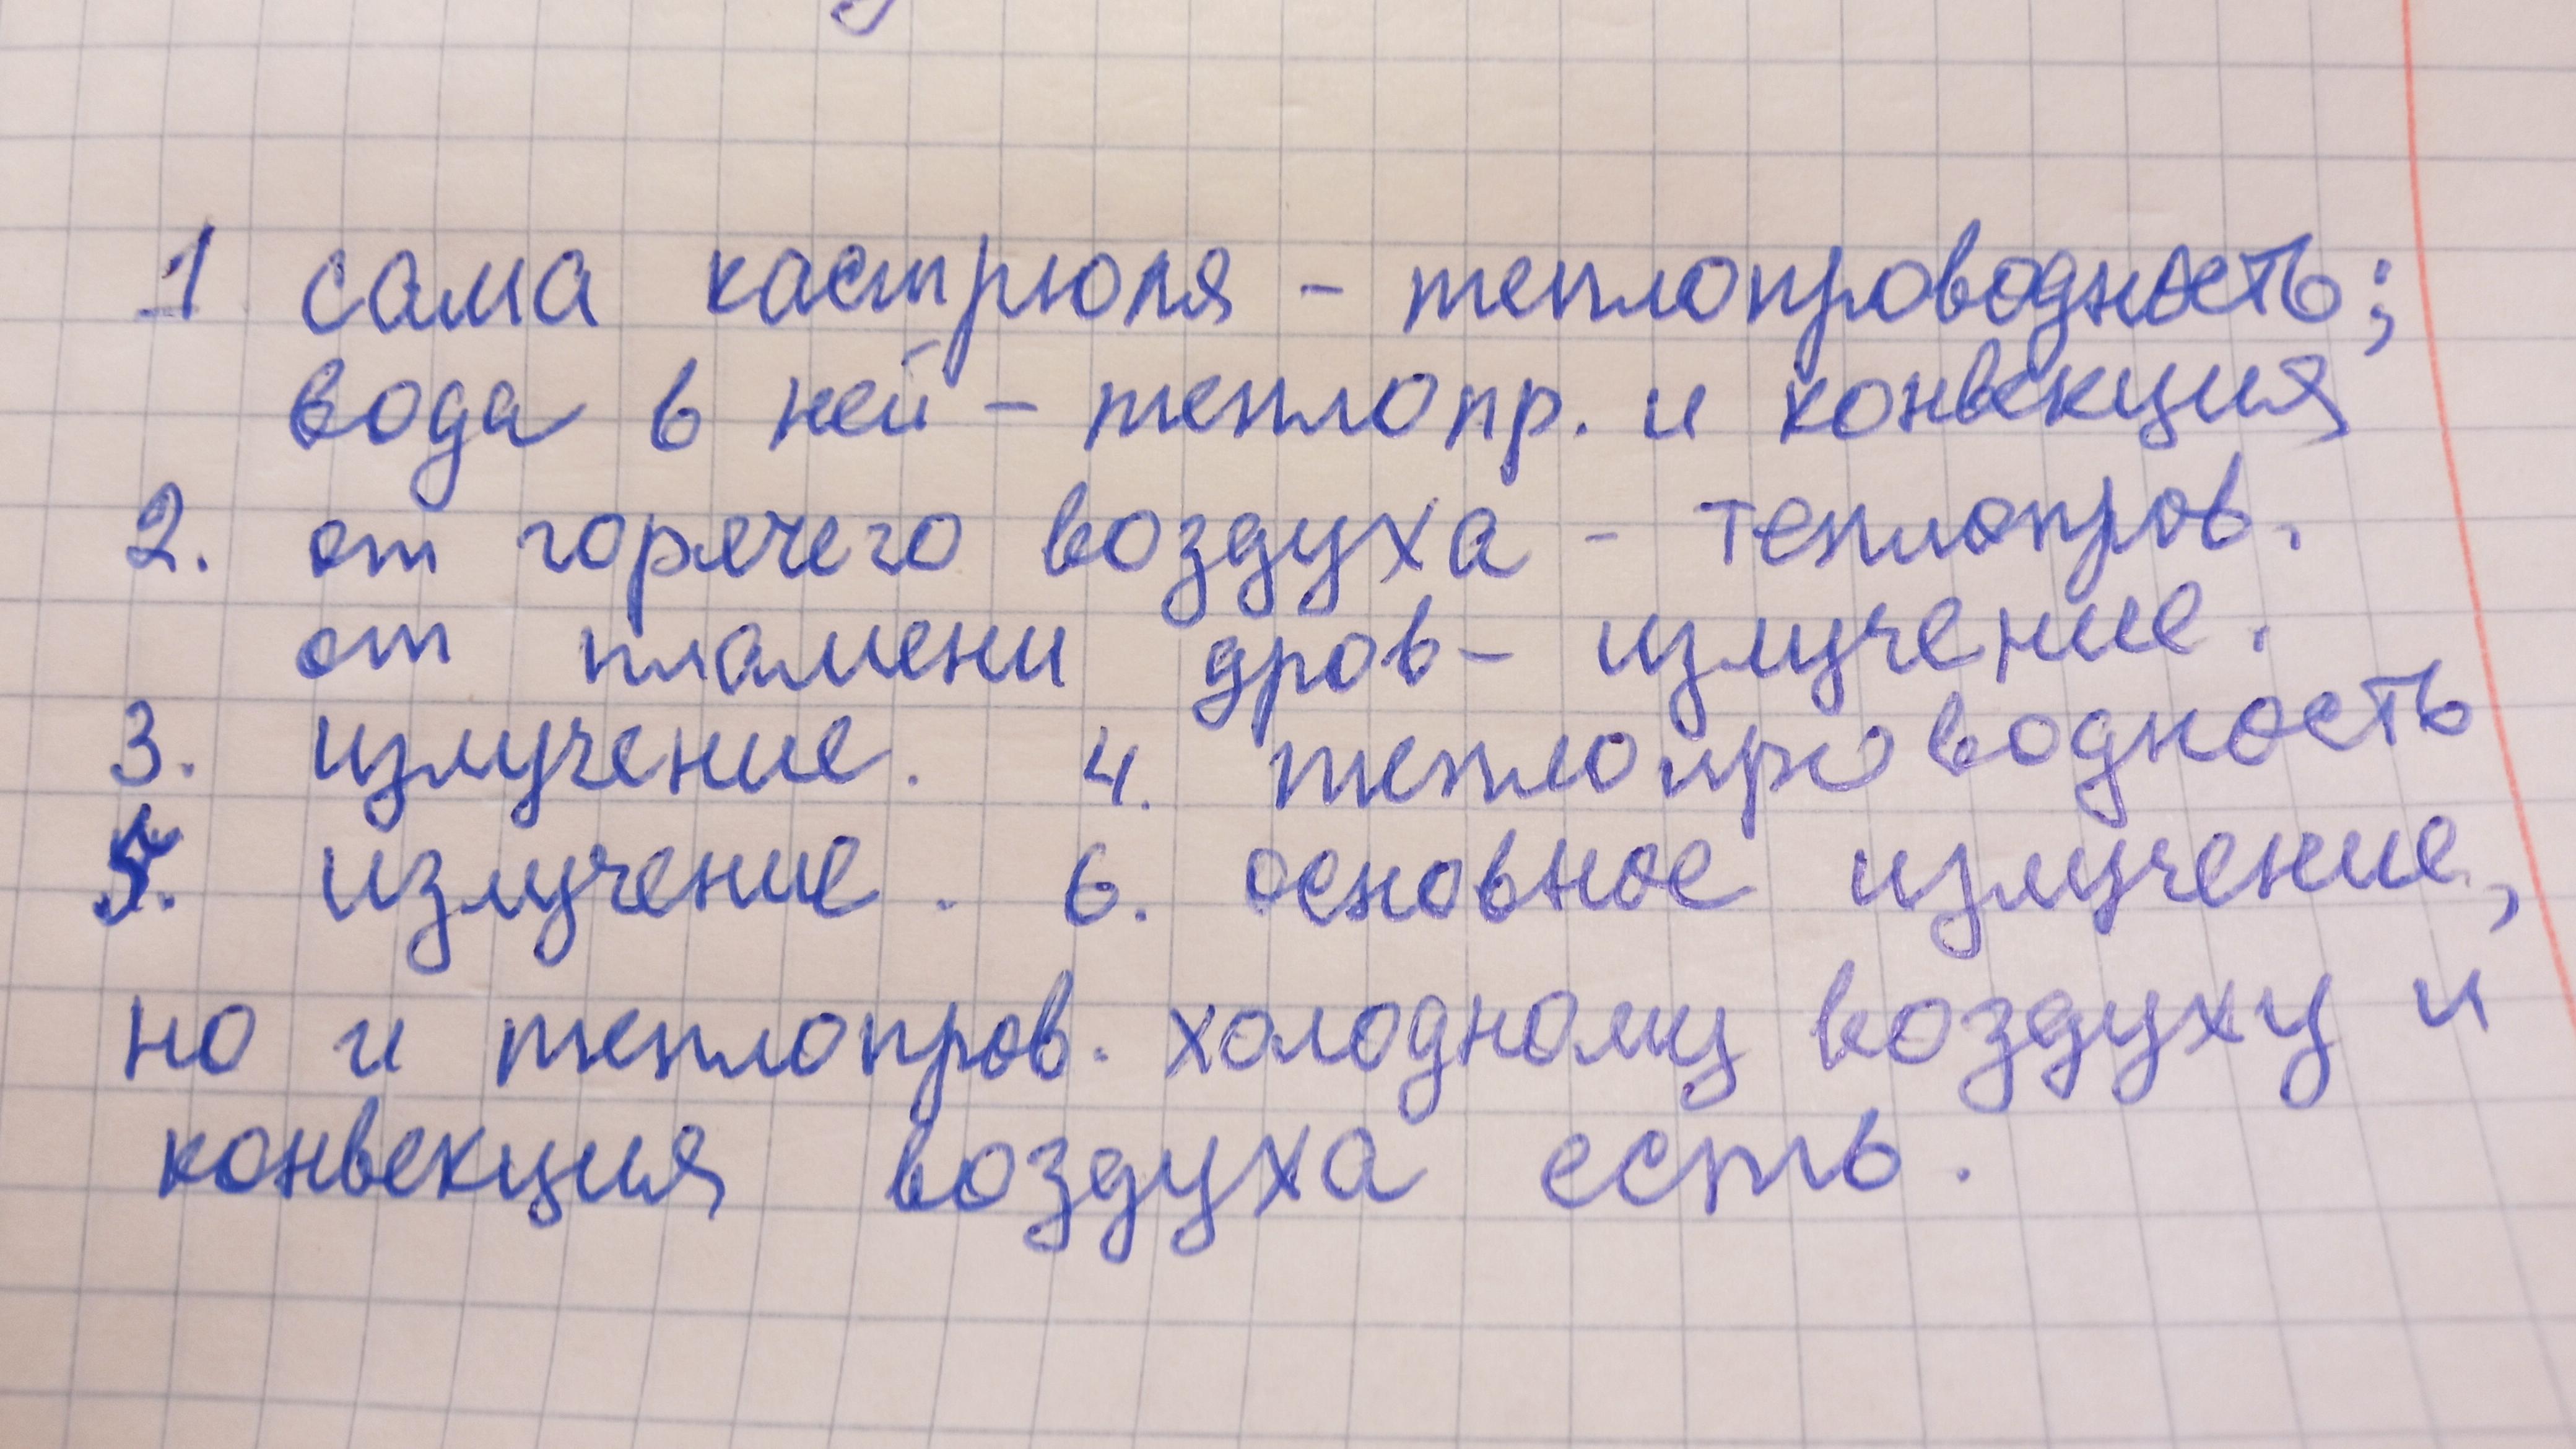 1 сама кастрюля - теплопроводность;
вода в ней - теплопр. и конвекция
2. от горячего воздуха - теплопров.
от пламени дров - излучение.
3. излучение. 4. теплопроводность
5. излучение. 6. основное излучение,
но и теплопров. холодному воздуху и
конвекция воздуха есть.